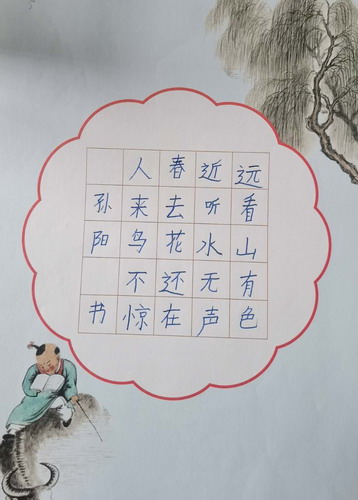 远看山有色
近听水无声
春去花还在
人来鸟不惊
孙阳书